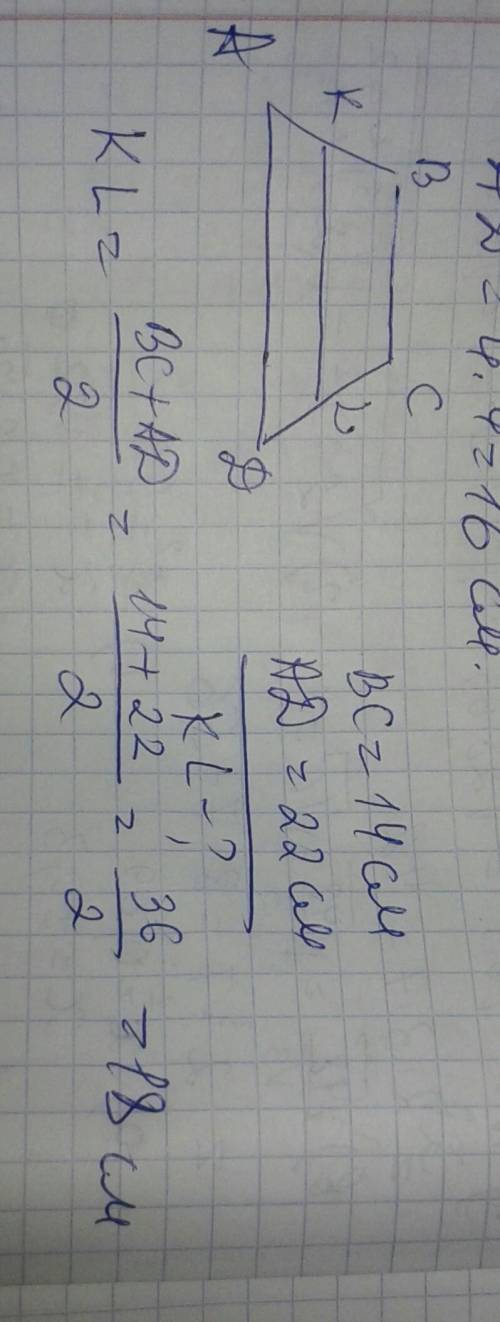 AD = 4·4 = 16 см.
BC = 14 см
AD = 22 см
KL - ?
A K B C L D
KL = (BC + AD)/2 = (14 + 22)/2 = 36/2 = 18 см